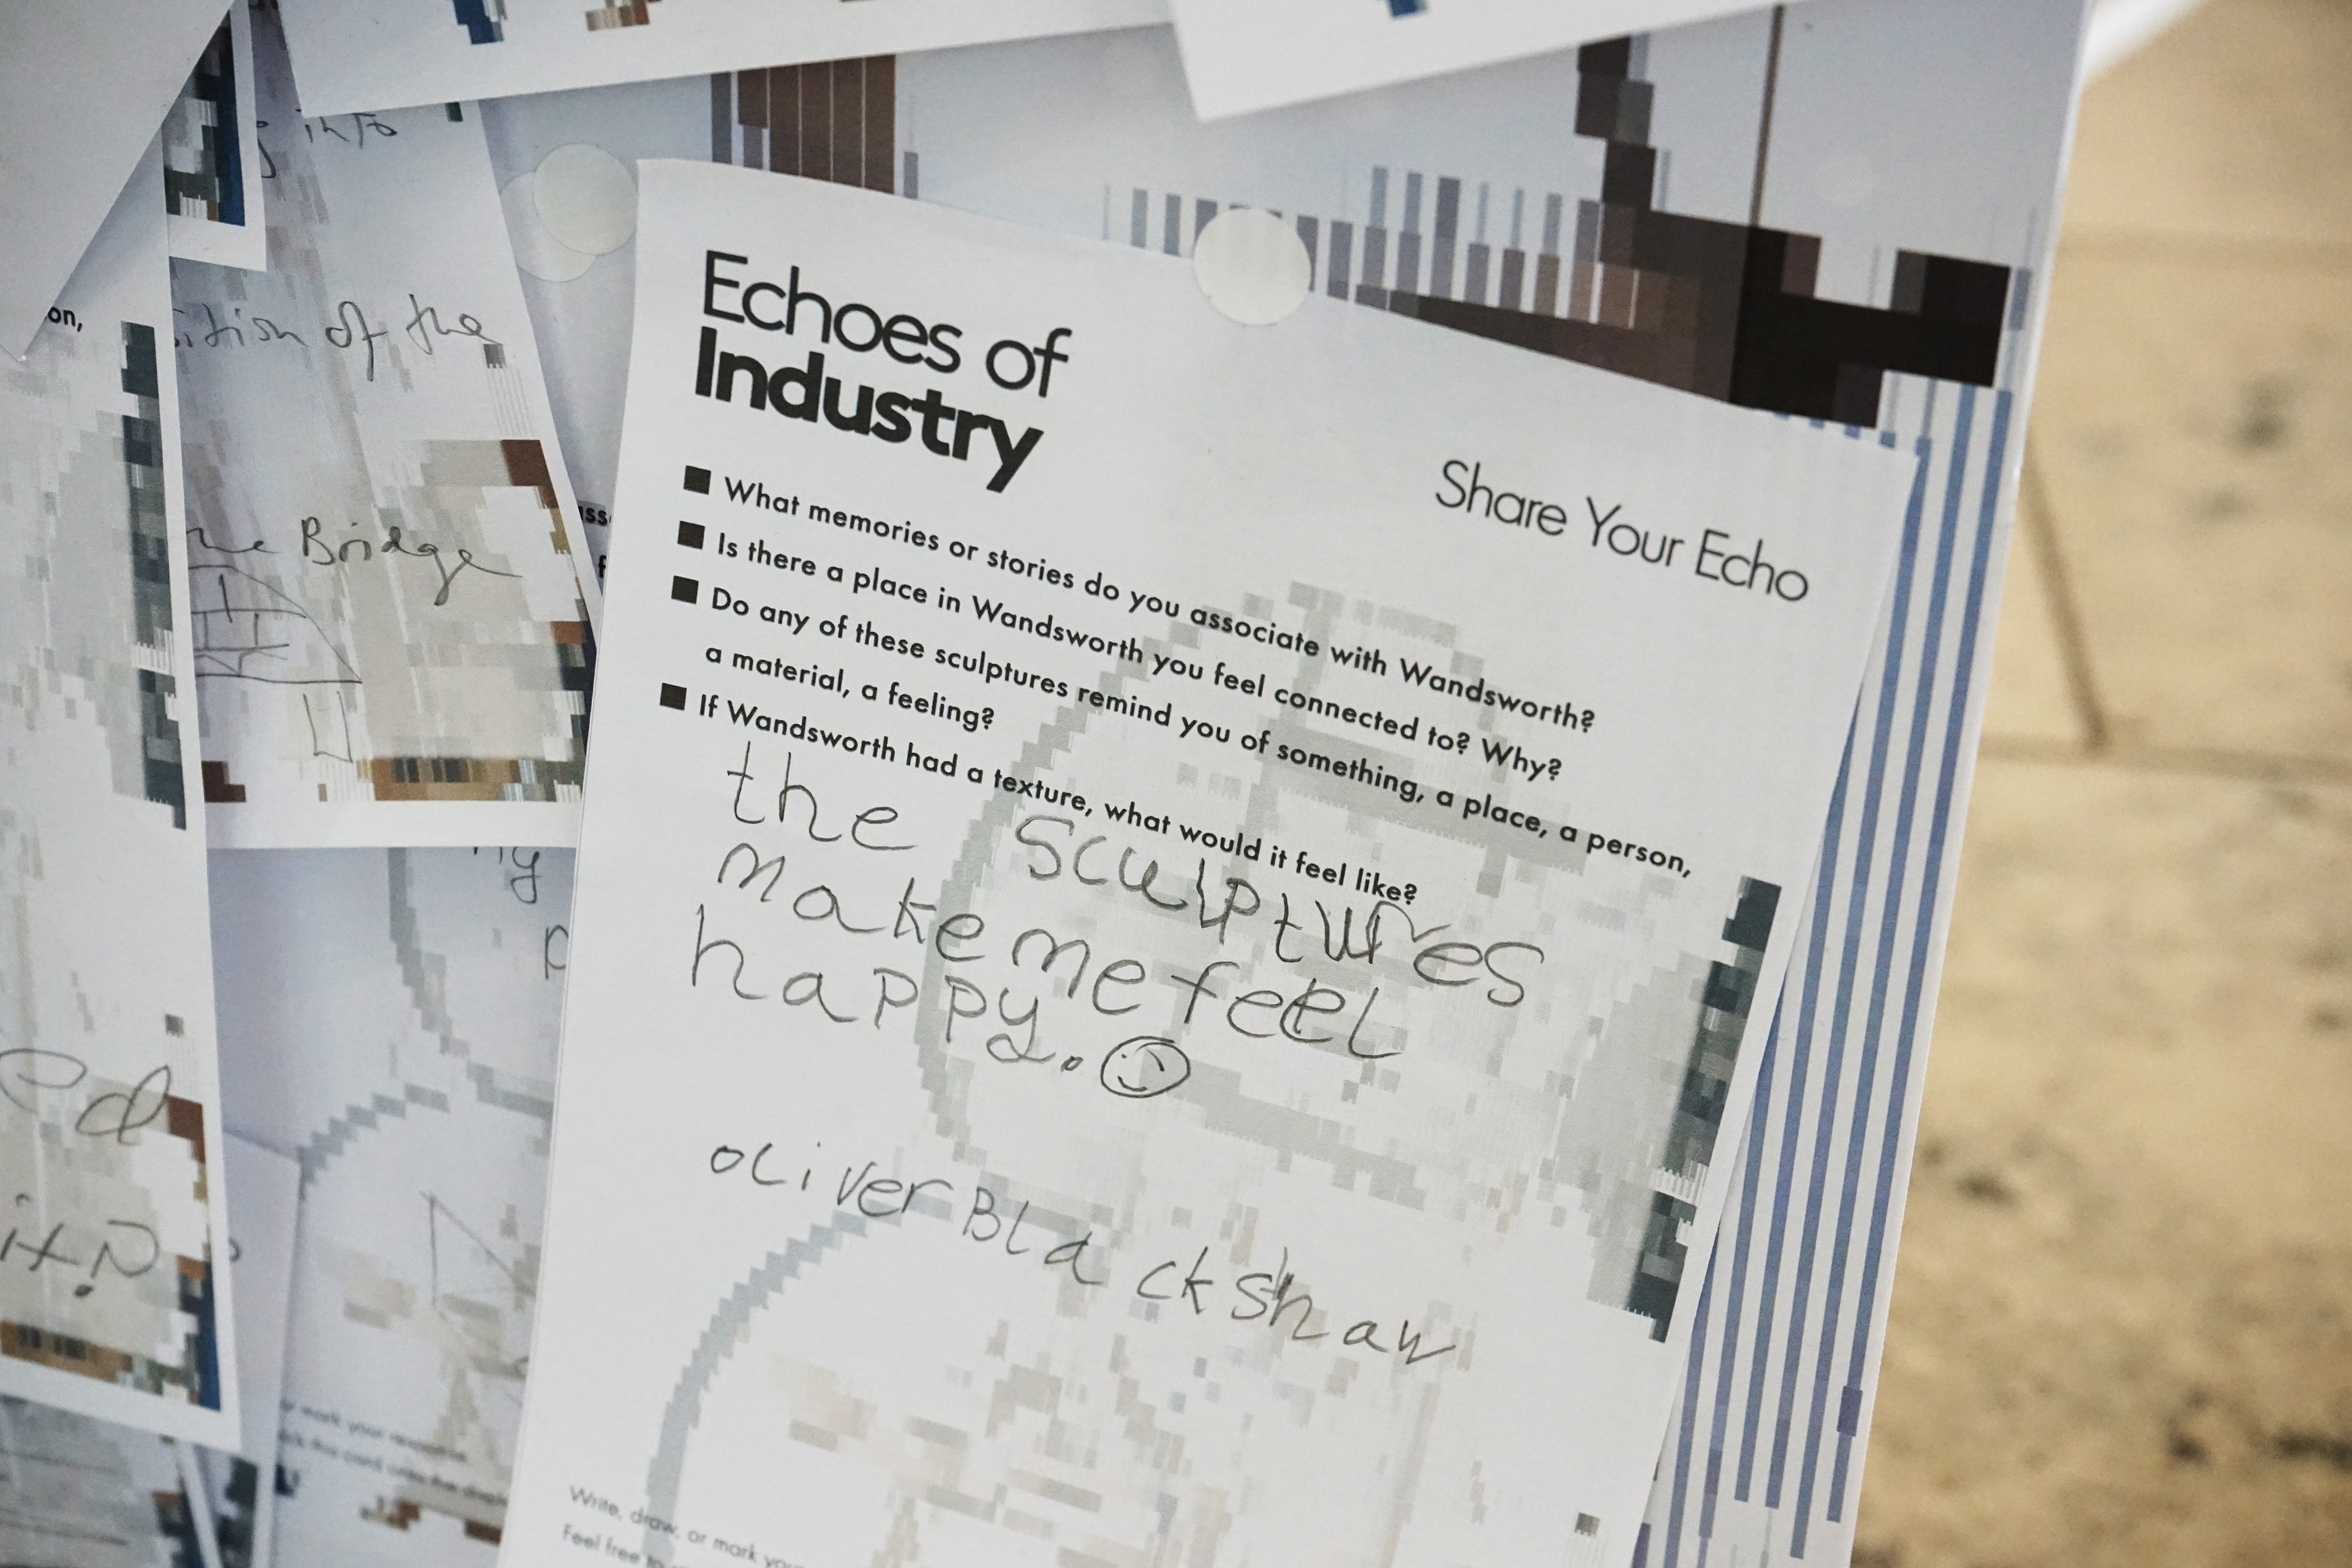 Echoes of
Industry
Share Your Echo
What memories or stories do you associate with Wandsworth?
Is there a place in Wandsworth you feel connected to? Why?
Do any of these sculptures remind you of something, a place, a person,
a material, a feeling?
If Wandsworth had a texture, what would it feel like?
the sculptures
make me feel
happy.
oliver Blackshaw
Write, draw, or mark your
Feel free to
into
on,
sition of the
Bridge
ed
it?
or mark your response
this card onto the